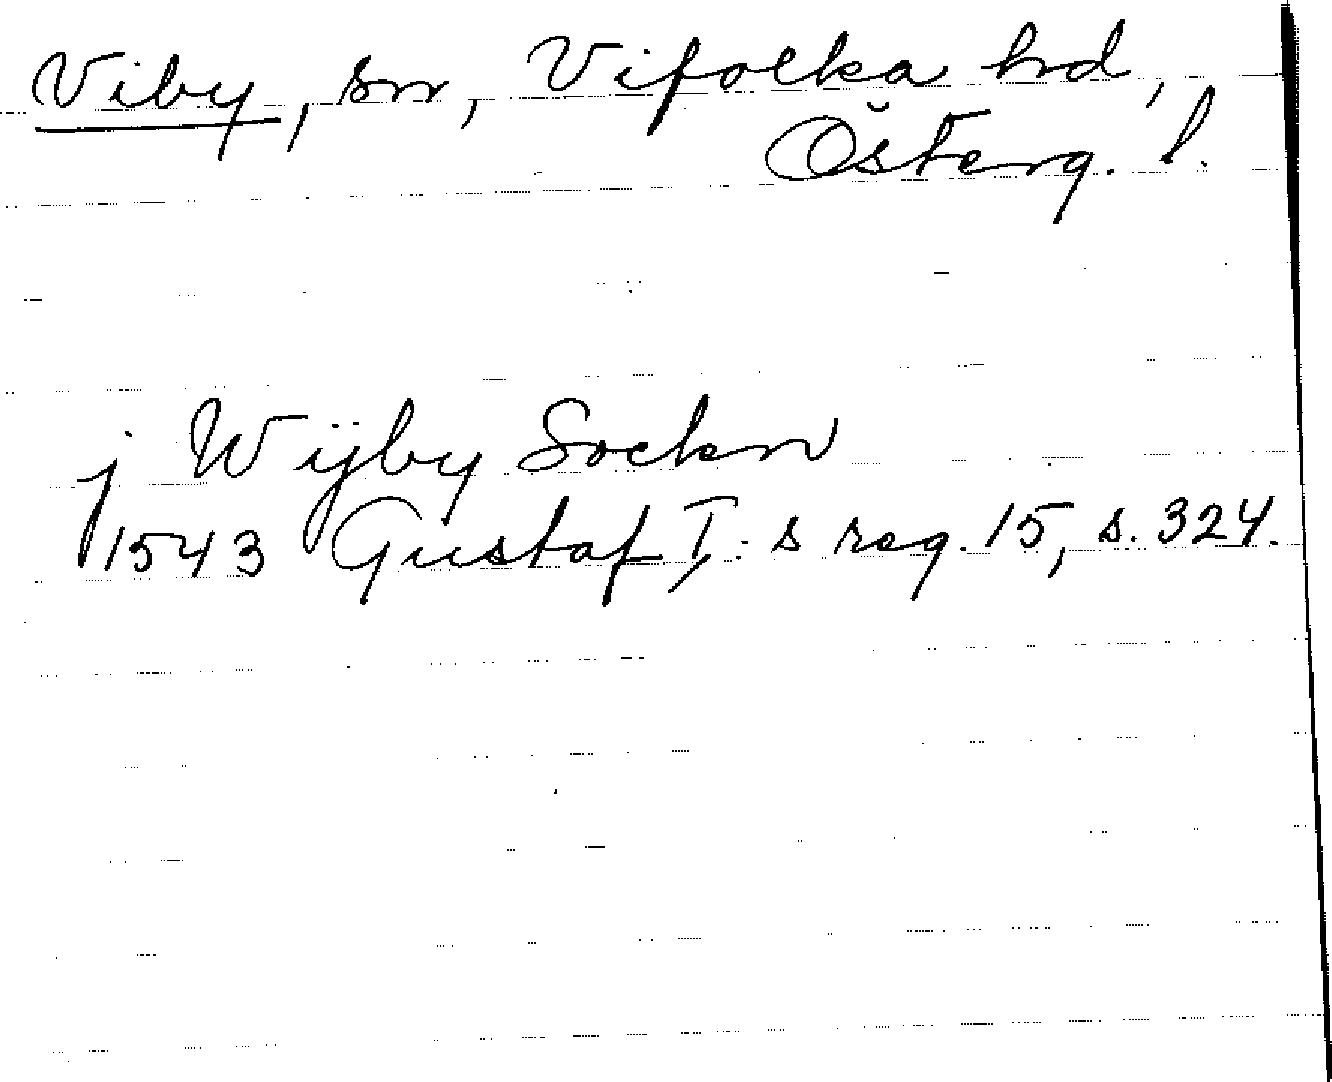 Viby, sn, Vifolka hd,
Österg. l.
j Wijby Sockn
1543 Gustaf I:s reg. 15, s. 324.